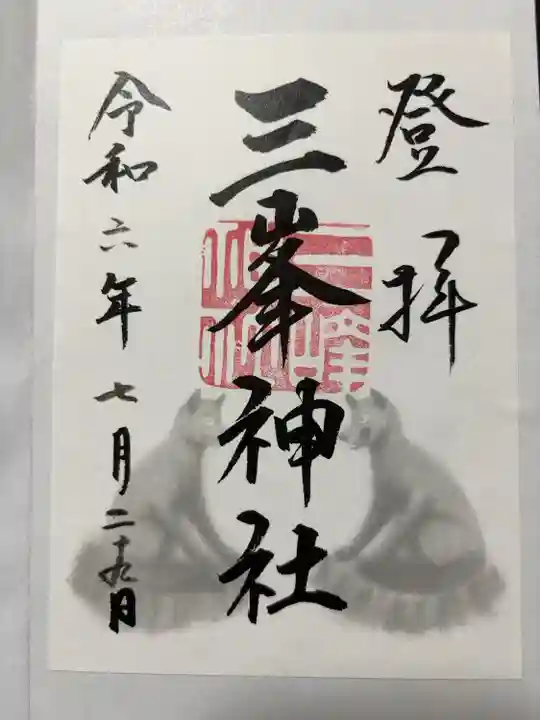 登拝
三峯神社
令和六年七月二十九日